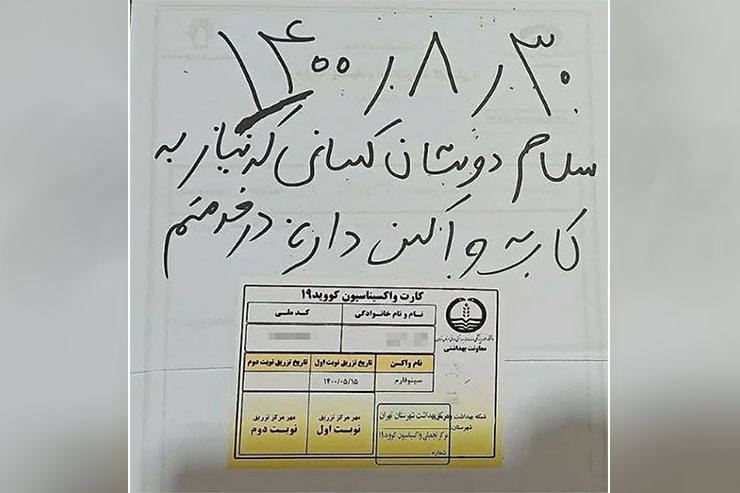 ۱۴۰۰٫۸٫۳۰
سلام دوستان کسانی که نیاز به
کارت واکسن دارند در خدمتم
کارت واکسیناسیون کووید۱۹
نام و نام خانوادگی
کد ملی
معاونت بهداشتی
نام واکسن
تاریخ تزریق نوبت اول
تاریخ تزریق نوبت دوم
سینوفارم
۱۴۰۰/۰۵/۱۵
مهر مرکز تزریق
نوبت اول
مهر مرکز تزریق
نوبت دوم
شبکه بهداشت و
شهرستان:
مرکز بهداشت شهرستان تهران
مرکز تجمعی واکسیناسیون کووید۱۹
شماره